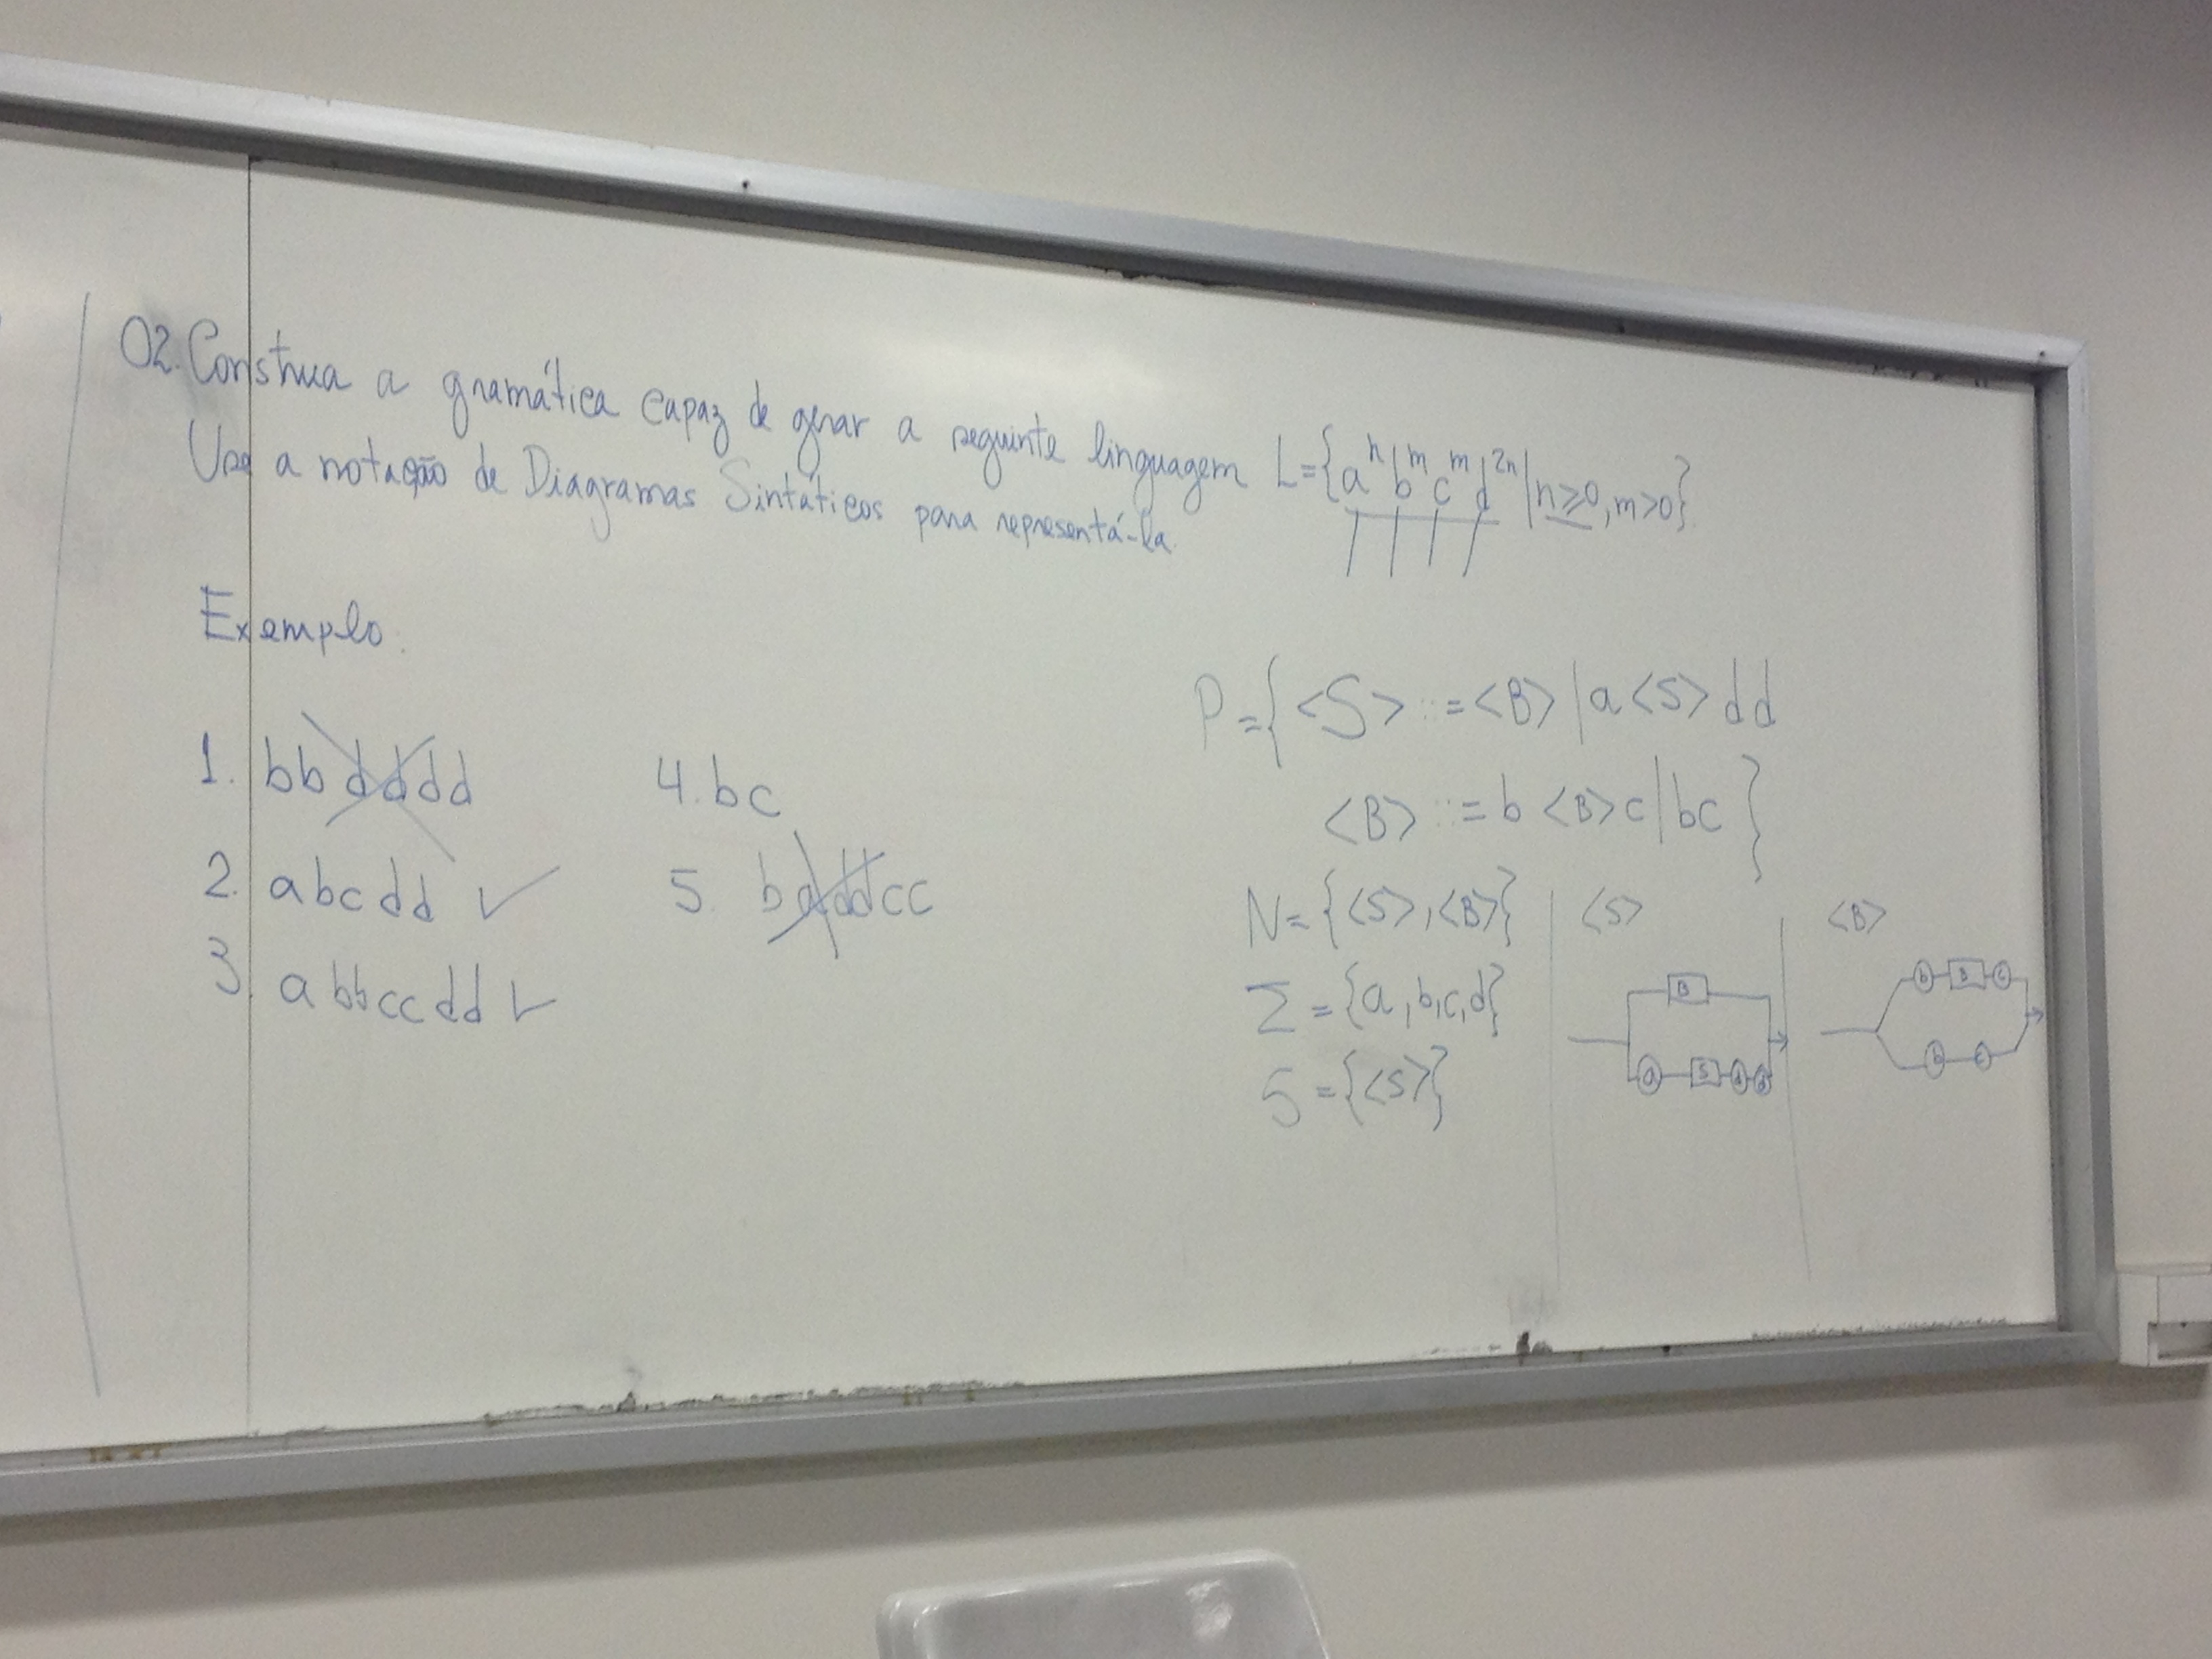 02. Construa a gramática capaz de gerar a seguinte linguagem L={aⁿbᵐcᵐd²ⁿ|n≥0,m>0}.
Use a notação de Diagramas Sintáticos para representá-la.
Exemplo:
1. bbdddd
2. abcdd ✓
3. abbccdd ✓
4. bc
5. bdddcc
P={<S> ::= <B>|a<S>dd
<B> ::= b<B>c|bc}
N={<S>,<B>}
Σ={a,b,c,d}
S={<S>}
<S>
B
a S d d
<B>
b B c
b c